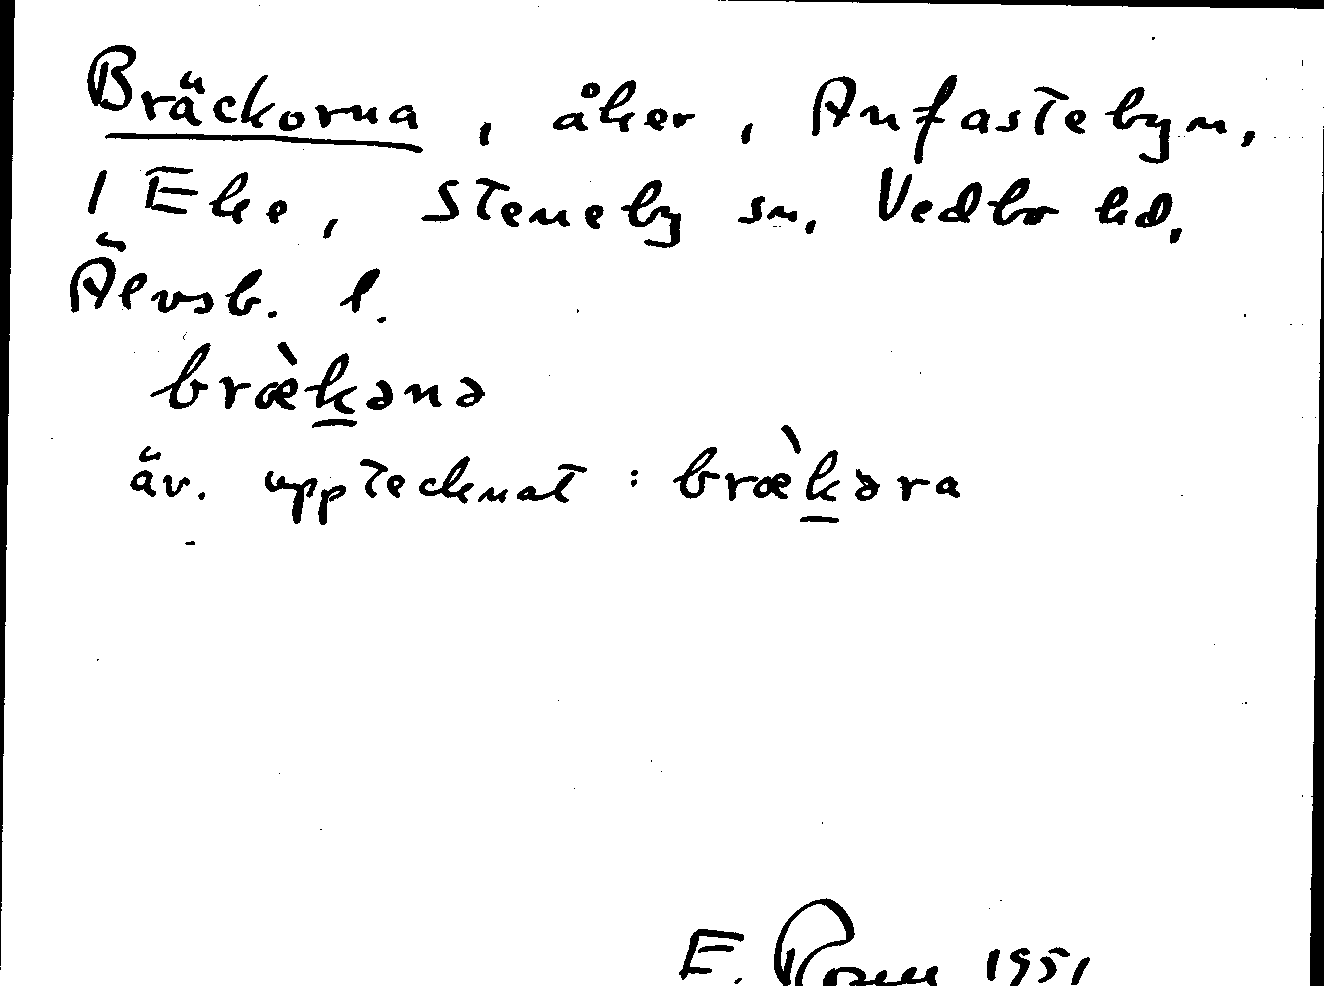 Bräckorna, åker, Anfastebyn,
1 Eke, Steneby sn, Vedbo hd,
Älvsb. l.
bræ̀k̲ənə
äv. upptecknat : bræ̀k̲əra
E. Rosén 1951